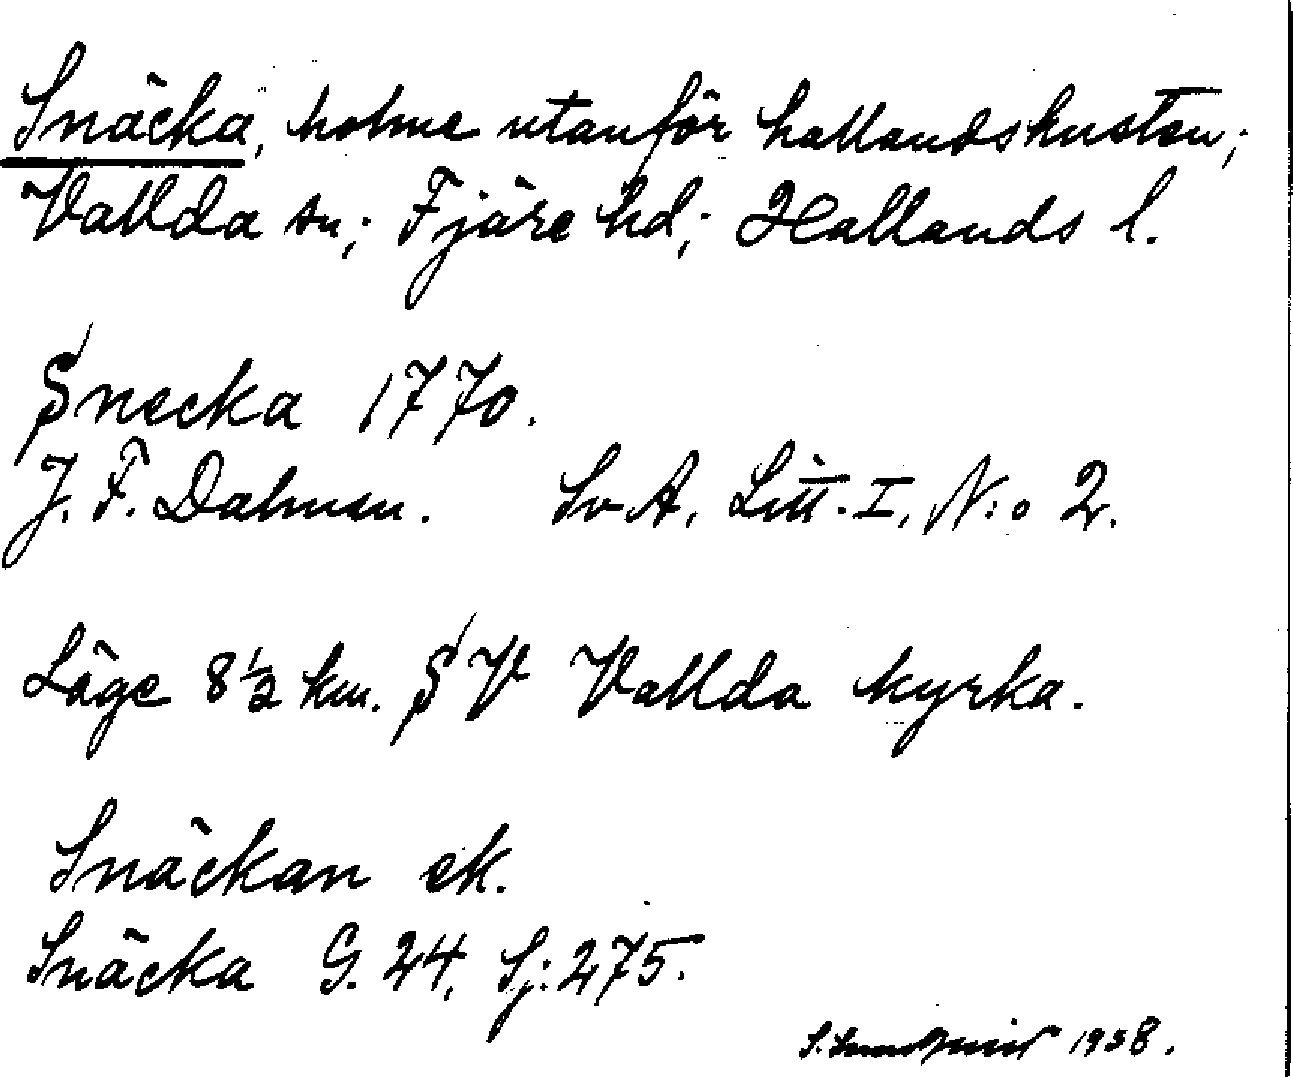 Snäcka, holme utanför hallandskusten;
Vallda sn; Fjäre hd; Hallands l.
Snecka 1770.
J. F. Dalman. Sv A, Litt. I, N:o 2.
Läge 8 1/2 km. S V Vallda kyrka.
Snäckan ek.
Snäcka G. 24, Sj: 275.
S. 1938.